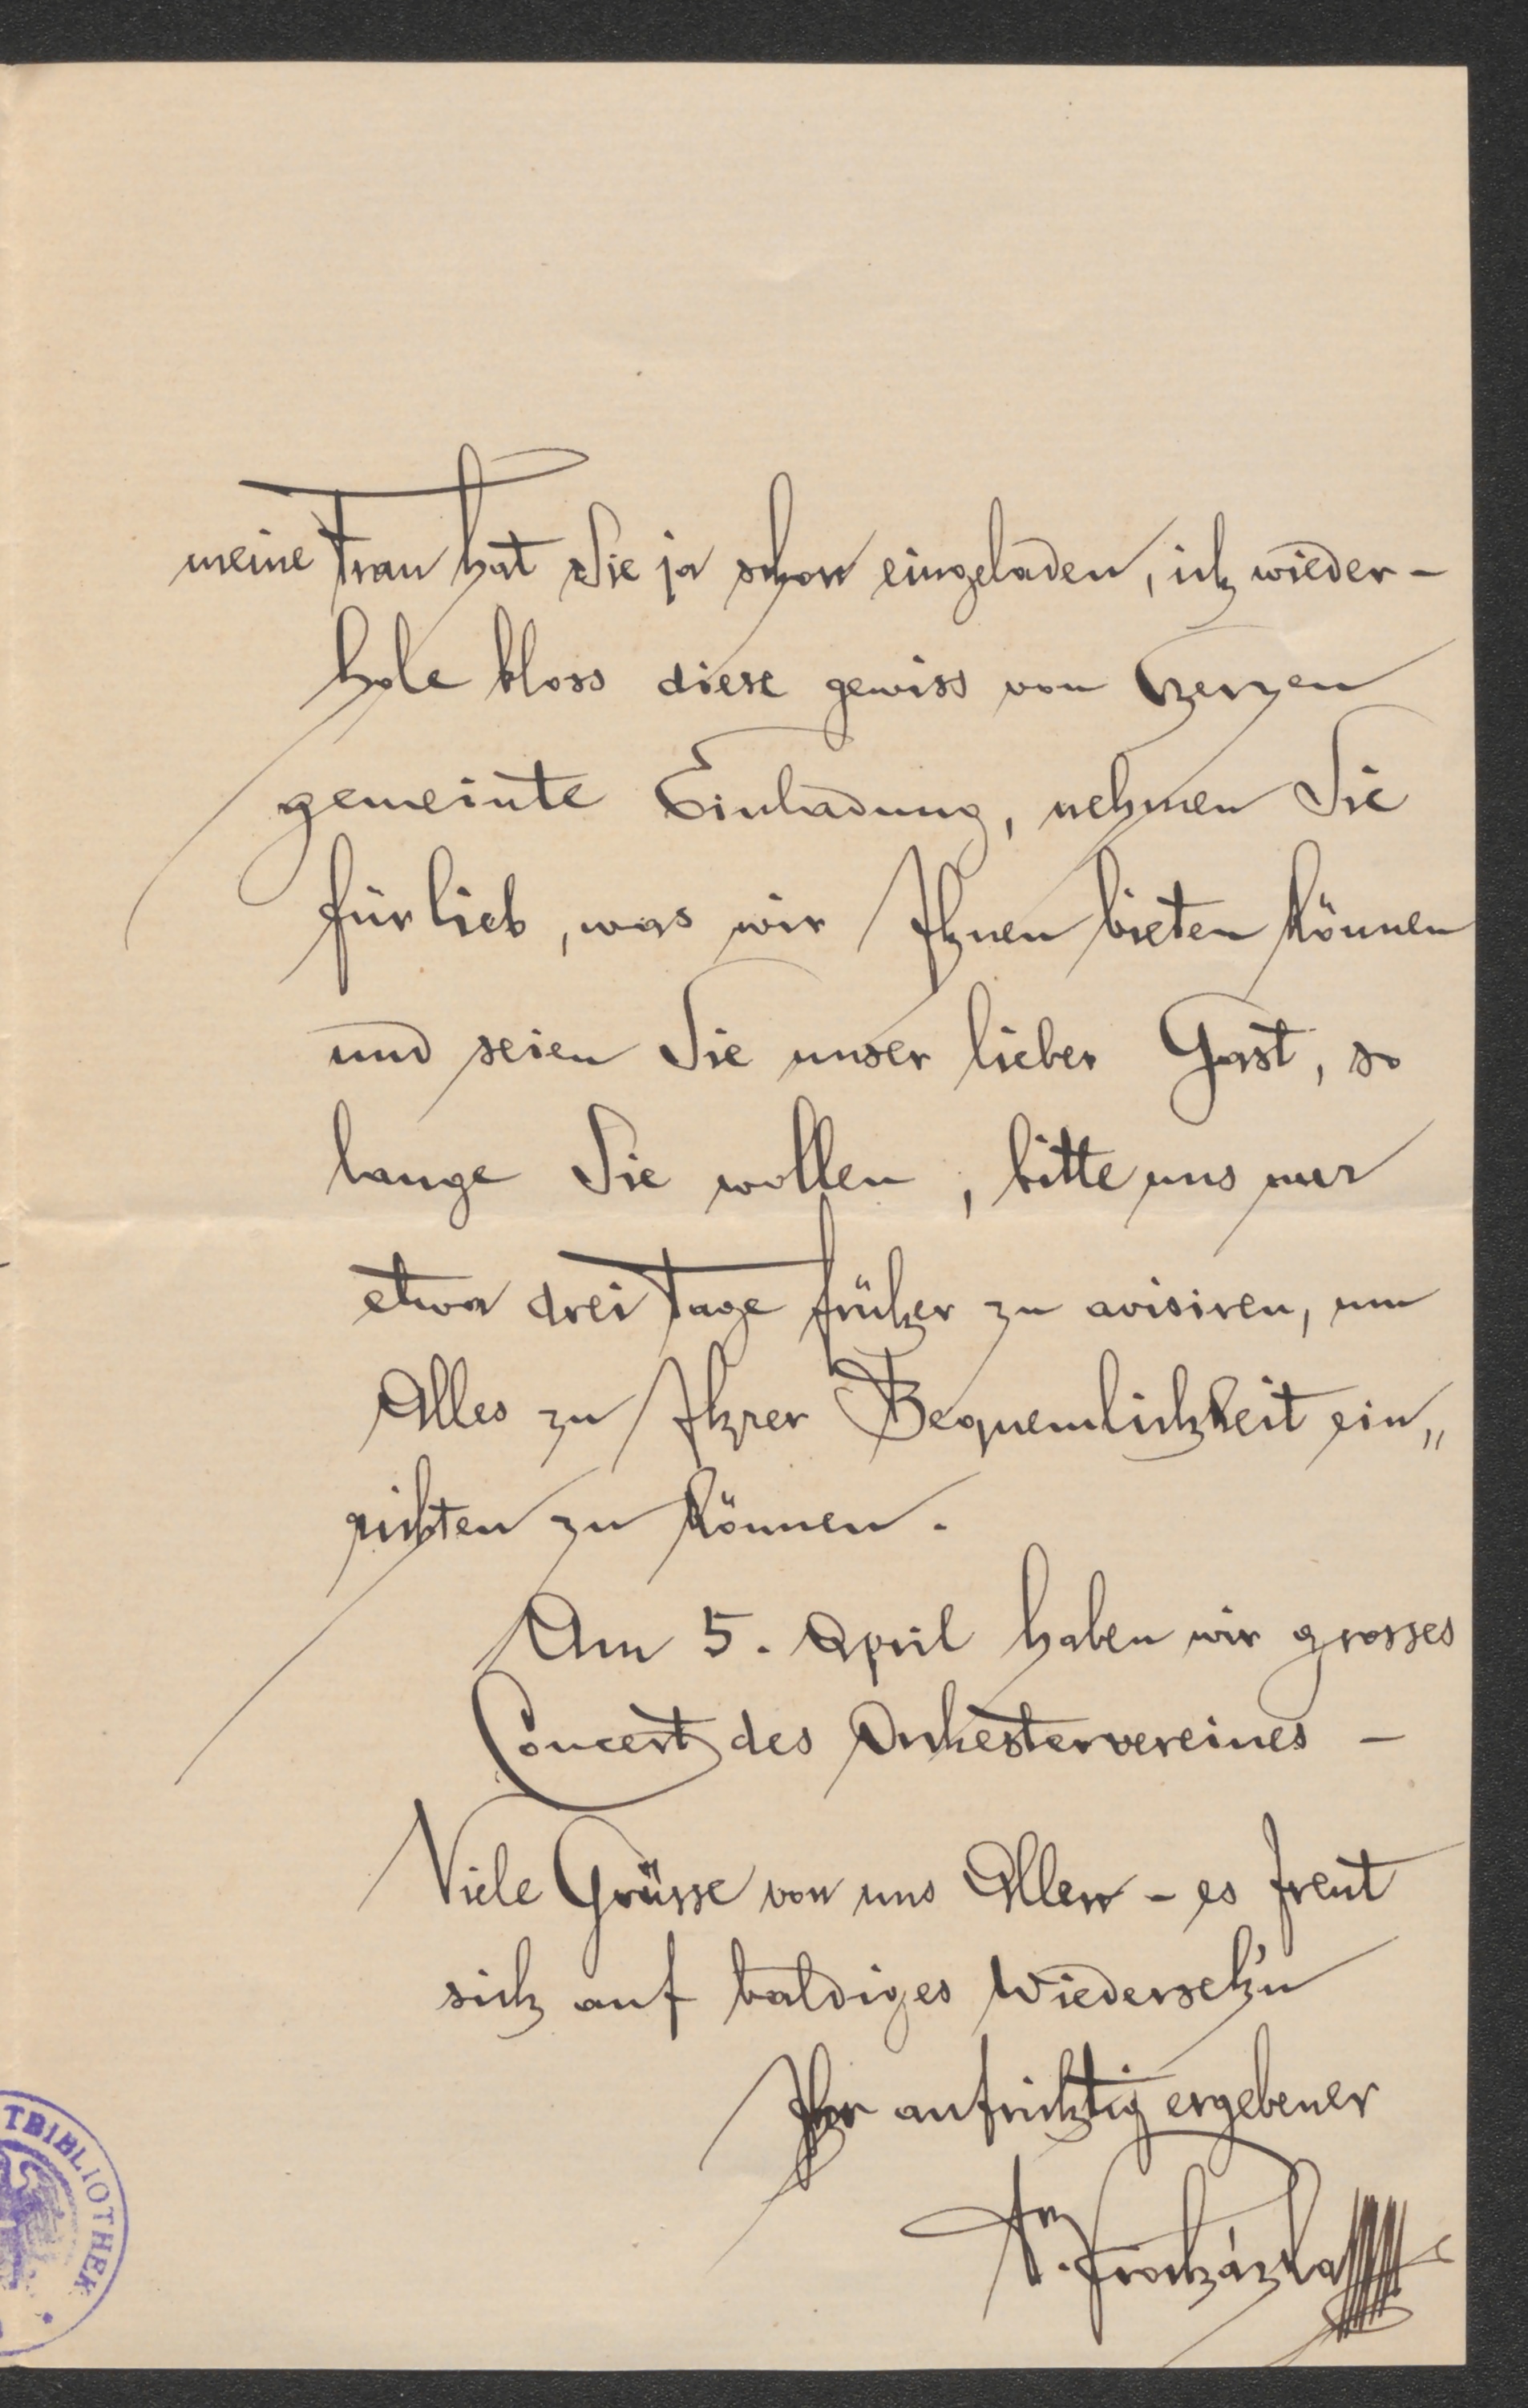 meine Frau hat Sie ja schon eingeladen, ich wieder-
hole bloss diese gewiss von Herzen
gemeinte Einladung, nehmen Sie
fürlieb, was wir Ihnen bieten können
und seien Sie unser lieber Gast, so
lange Sie wollen, bitte uns nur
etwa drei Tage früher zu avisiren, um
Alles zu Ihrer Bequemlichkeit ein„
richten zu können.
Am 5. April haben wir grosses
Concert des Orchestervereines -
Viele Grüsse von uns Allen - es freut
sich auf baldiges Wiederseh'n
Ihr aufrichtig ergebener
Procházka
TBIBLIOTHEK